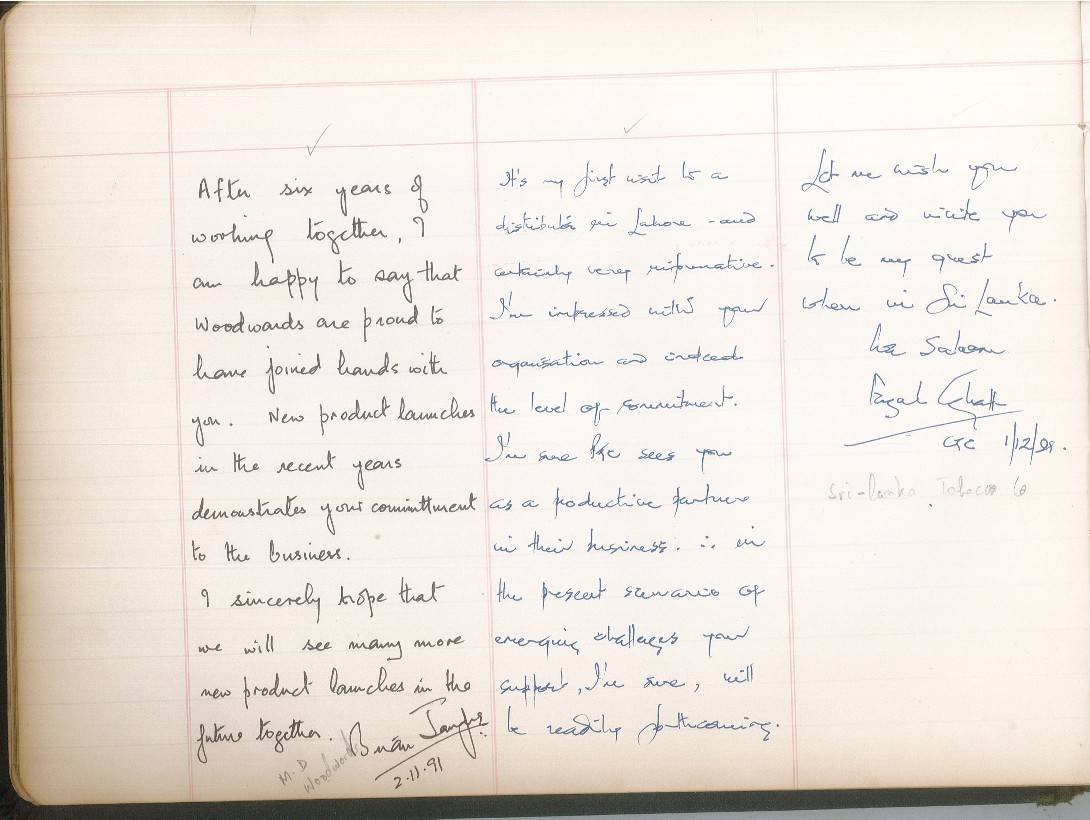 After six years of
working together, I
am happy to say that
Woodwards are proud to
have joined hands with
you. New product launches
in the recent years
demonstrates your committment
to the business.
I sincerely hope that
we will see many more
new product launches in the
future together. Brian
2.11.91
M.D
Woodwards
It's my first visit to a
distributor in Lahore - and
certainly very informative.
I'm impressed with your
organisation and indeed
the level of commitment.
I'm sure sees you
as a productive partner
in their business. ∴ in
the present scenario of
emerging challenges your
support, I'm sure, will
be readily forthcoming.
Let me wish you
well and invite you
to be my guest
when in Sri Lanka.
Fazal
CTC 1/12/91.
Sri-Lanka Tobacco Co